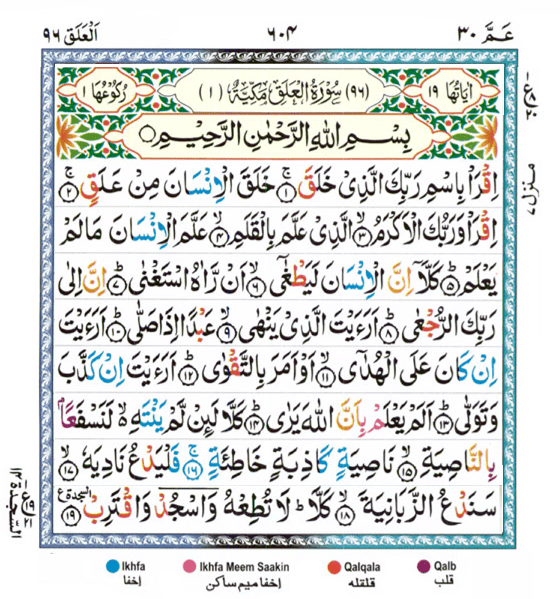 عَمَّ ٣٠ ٦٠٤ اَلْعَلَق ٩٦
اٰيَاتُهَا ١٩ (٩٦) سُوْرَةُ الْعَلَقِ مَكِّيَّةٌ (١) رُكُوْعُهَا ١
بِسْمِ اللّٰهِ الرَّحْمٰنِ الرَّحِيْمِ
اِقْرَاْ بِاسْمِ رَبِّكَ الَّذِیْ خَلَقَ ۚ‏﴿١﴾ خَلَقَ الْاِنْسَانَ مِنْ عَلَقٍ ۚ‏﴿٢﴾
اِقْرَاْ وَرَبُّكَ الْاَكْرَمُ ۙ‏﴿٣﴾ الَّذِیْ عَلَّمَ بِالْقَلَمِ ۙ‏﴿٤﴾ عَلَّمَ الْاِنْسَانَ مَا لَمْ
يَعْلَمْ ؕ‏﴿٥﴾ كَلَّاۤ اِنَّ الْاِنْسَانَ لَيَطْغٰٓى ۙ‏﴿٦﴾ اَنْ رَّاٰهُ اسْتَغْنٰى ؕ‏﴿٧﴾ اِنَّ اِلٰى
رَبِّكَ الرُّجْعٰى ؕ‏﴿٨﴾ اَرَءَيْتَ الَّذِیْ يَنْهٰى ۙ‏﴿٩﴾ عَبْدًا اِذَا صَلّٰى ؕ‏﴿١٠﴾ اَرَءَيْتَ
اِنْ كَانَ عَلَى الْهُدٰٓى ۙ‏﴿١١﴾ اَوْ اَمَرَ بِالتَّقْوٰى ؕ‏﴿١٢﴾ اَرَءَيْتَ اِنْ كَذَّبَ
وَتَوَلّٰى ؕ‏﴿١٣﴾ اَلَمْ يَعْلَمْ بِاَنَّ اللّٰهَ يَرٰى ؕ‏﴿١٤﴾ كَلَّا لَئِنْ لَّمْ يَنْتَهِ ۙ۬ لَنَسْفَعًاۢ
بِالنَّاصِيَةِ ۙ‏﴿١٥﴾ نَاصِيَةٍ كَاذِبَةٍ خَاطِئَةٍ ۚ‏﴿١٦﴾ فَلْيَدْعُ نَادِيَهٗ ۙ‏﴿١٧﴾
سَنَدْعُ الزَّبَانِيَةَ ۙ‏﴿١٨﴾ كَلَّا ؕ لَا تُطِعْهُ وَاسْجُدْ وَاقْتَرِبْ ۩‏﴿١٩﴾ السجدة
منزل ٧
السَّجْدَة ١٤
Ikhfa Ikhfa Meem Saakin Qalqala Qalb
إخفا إخفا ميم ساكن قلقله قلب